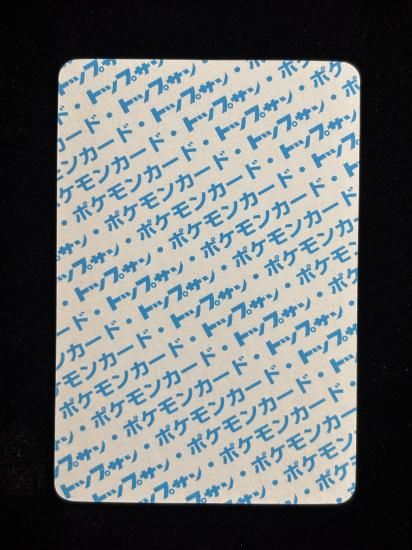 トップサン
ド・トップサン・ポ
カード・トップサン・ポケ
ンカード・トップサン・ポケ
ポケモンカード・トップサン
・ポケモンカード・トップサン
サン・ポケモンカード・トップ
トップサン・ポケモンカード・
・トップサン・ポケモンカード
ド・トップサン・ポケモンカー
カード・トップサン・ポケモン
モンカード・トップサン・ポケ
ポケモンカード・トップサン・
・ポケモンカード・トップサン
サン・ポケモンカード・
トップサン・ポケモンカード
トップサン・ポケモン